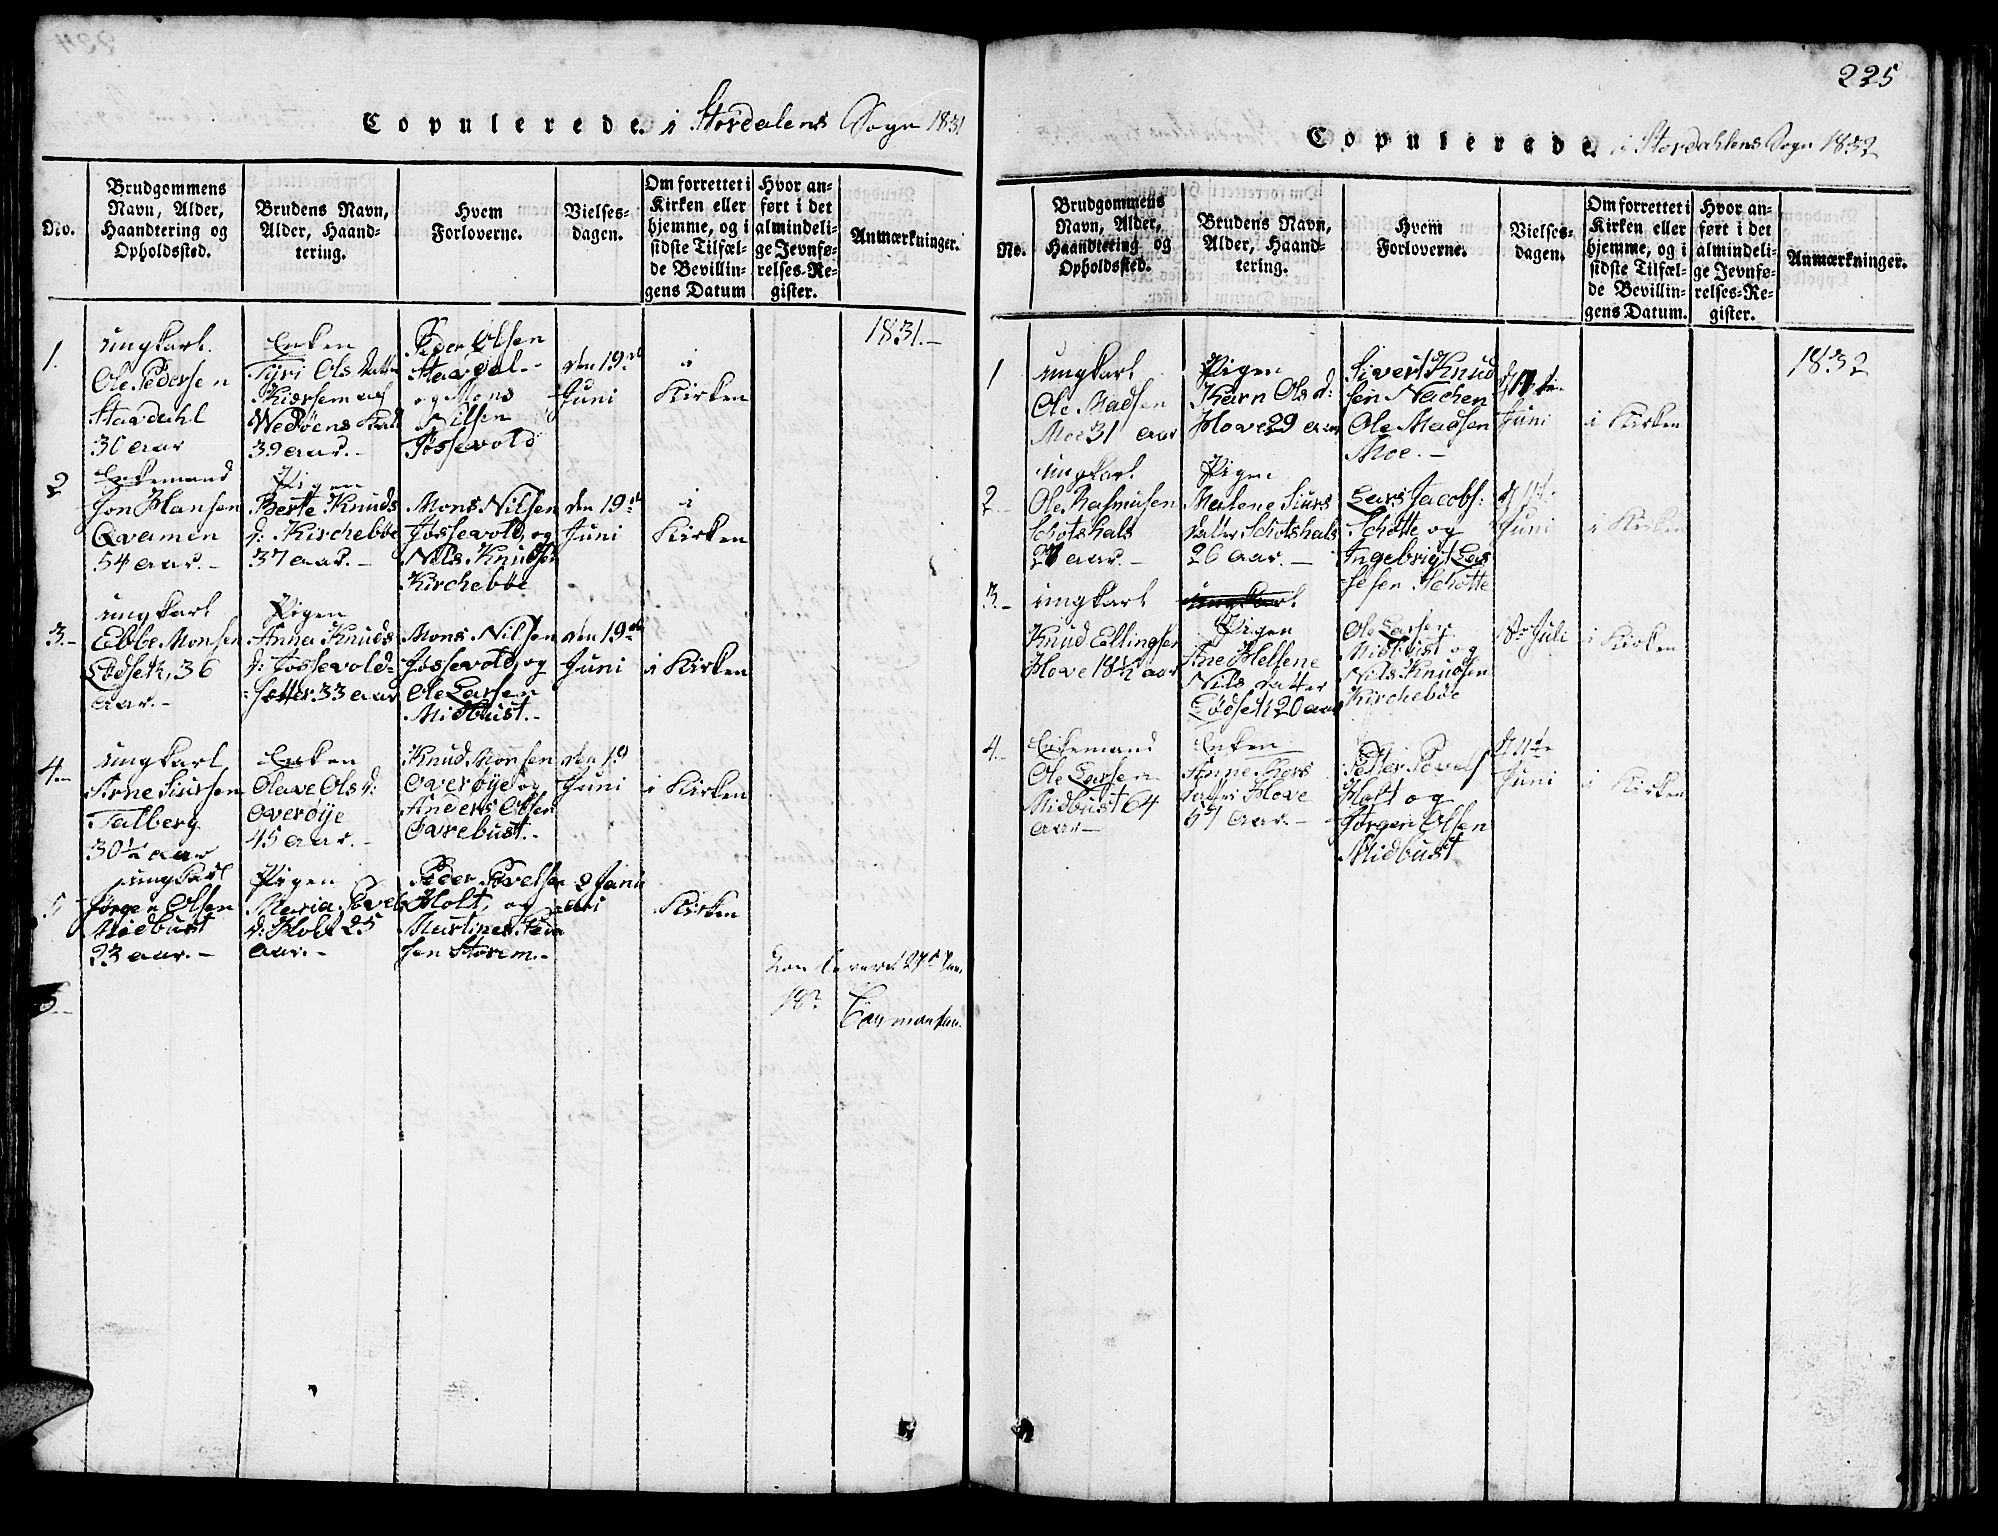 Copulerede i Stordalens Sogn 1831
No.
Brudgommens Navn, Alder, Haandtering og Opholdssted.
Brudens Navn, Alder, Haandtering.
Hvem Forloverne.
Vielsesdagen.
Om forrettet i Kirken eller hjemme, og i sidste Tilfælde Bevillingens Datum
Hvor anført i det almindelige Jevnførelses-Register.
Anmærkninger.
1831.-
1.
ungkarl.
Ole Pedersen
Stavdahl
30 aar
Enken
Tyri Ols Datter
Wedøens
39 aar.-
Peder Olsen
Stavdal-
og Mons
Nilsen
Jøssevold
den 19de
Juni
i
Kirken
2
Enkemand
Jon Hansen
Qvamen
54 aar.-
Pigen
Berte Knuds
d: Kirchebøe
37 aar.-
Mons Nilsen
Jøssevold, og
Nils Knudsen
Kirchebøe
den 19de
Juni
i
Kirken
3.-
ungkarl
Ebbe Monsen
Lødseth, 36
aar.-
Pigen
Anna Knuds
d: Jossevold-
sætter 33 aar
Mons Nilsen
Jøssevold, og
Ole Larsen
Midbust.-
den 19de
Juni
i Kirken
4.-
ungkarl
Arne Siursen
Talberg
30½ aar
Enken
Olave Ols d:
Overøije
45 aar.-
Knud Monsen
Overøije og
Anders Olsen
Øvrebust.-
den 19
Juni
i Kirken
5
ungkarl
Jørgen Olsen
Midbust
23 aar.-
Pigen
Maria Povels
d: Holt 25
aar.-
Peder Povelsen
Holt, og
Martinus
sen Storem.-
Kirken
5.-
Copulerede i Stordahlens Sogn 1832
225
No.
Brudgommens Navn, Alder, Haandtering og Opholdssted.
Brudens Navn, Alder, Haandtering.
Hvem Forloverne.
Vielsesdagen.
Om forrettet i Kirken eller hjemme, og i sidste Tilfælde Bevillingens Datum.
Hvor anført i det almindelige Jevnførelses-Register.
Anmærkninger.
1832
1
ungkarl
Ole Madsen
Moe 31 aar
Pigen
Karn Ols d:
Hove 29 aar
Sivert Knud
sen Nachen
Ole Madsen
Moe.-
Juni
i Kirken
2.-
ungkarl
Ole Rasmusen
Schotshals
aar.-
Pigen
Malene Siurs
datter Schotshals
26 aar.-
Lars Jacobs:
Schotte og
Ingebrigt Las
sesen Schotte
Juni
i Kirken
3.-
ungkarl
Knud Ellingsen
Hove 18½ aar
Pigen
Ane Helsene
Nils datter
Lødset 20 aar
Ole Larsen
Midbust og
Nils Knudsen
Kirchebøe
Juli
i Kirken
4.-
Enkemand
Ole Larsen
Midbust 64
aar-
Enken
Anne
Hove
aar.-
Petter Povels
Holt og
Jørgen Olsen
Midbust
Juni
i Kirken